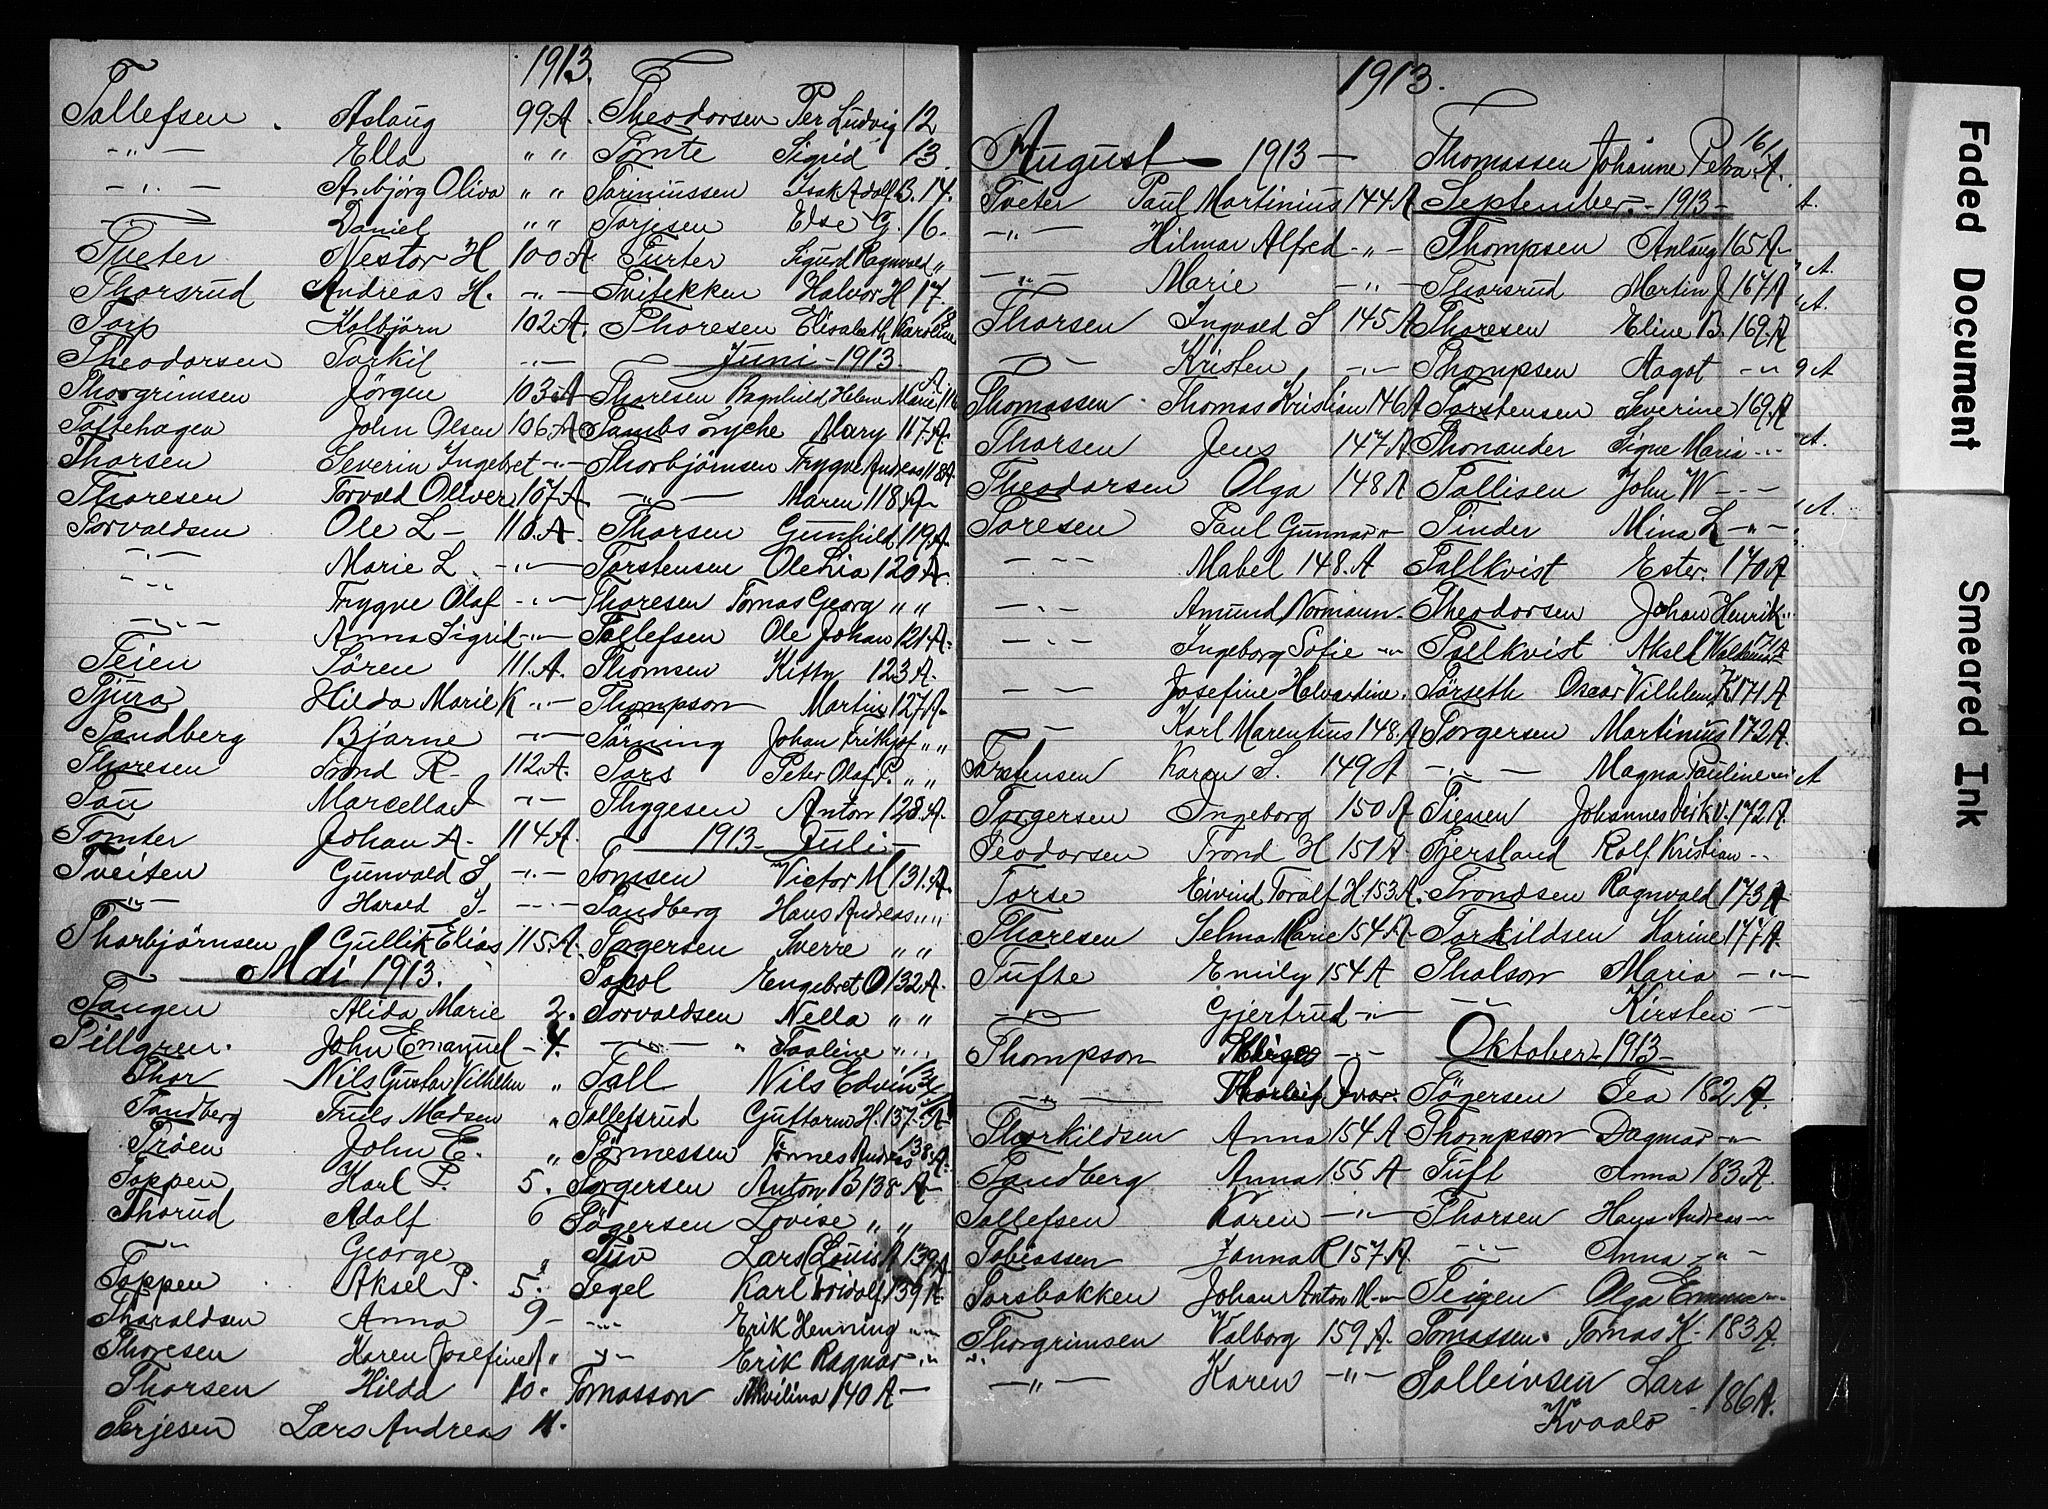 1913.
Tollefsen Aslaug 99 A
-"- Ella " "
-"- Anbjörg Oliva " "
-"- Daniel " "
Tveter Nestor H 100 A
Thorsrud Andreas H. -"-
Torp Kolbjörn 102 A
Theodorsen Torkil -"-
Thorgrimsen Jörgen 103 A
Toftehagen John Olsen 106 A
Thorsen Severin Ingebret -"-
Thoresen Torvald Oliver 107 A
Torvaldsen Ole L - 110. A
-"- Marie L. -"-
-"- Trygve Olaf -"-
-"- Anna Sigrid -"-
Teien Sören 111. A.
Tjura Hilda Marie K -"-
Sandberg Bjarne -"-
Thoresen Trond R - 112. A.
Tau Marcella J -"-
Tomter Johan A. 114 A
Tveiten Gunvald S -"-
-"- Harald S -"-
Thorbjörnsen Gullik Elias 115. A.
Mai 1913.
Tangen Alida Marie 2.
Tillgren. John Emanuel - 4.
Thor Nils Gustav Vilhelm "
Tandberg Truls Madsen "
Tröen John E. "
Toppen Karl P. 5.
Thorud Adolf 6
-"- George "
Toppen Aksel P. 5.
Tharaldsen Anna 9 -
Thoresen Karen Josefine A "
Thorsen Hilda 10.
Terjesen Lars Andreas 11.
Theodorsen Per Ludvig 12
Tömte Sigrid 13.
Torinussen Isak Adolf B. 14.
Torjesen Else G. 16.
Turter Sigurd Ragnvald "
Tvitekken Halvor H 17.
Thoresen Elisabeth Karoline 18
Juni - 1913.
Thoresen Ragnhild Helene Marie 116 A
Tambs Lyche Mary 117. A.
Thorbjörnsen Trygve Andreas 118 A
-"- Maren 118. A -
Thorsen Gunhild 119. A
Torstensen Olelia 120 A.
Thoresen Tomas Georg " "
Tollefsen Ole Johan 121. A.
Thomsen Kitty 123 A.
Thompson Martin 127. A.
Törning Johan Frithjof " "
Tors Peter Olaf P. " "
Thygesen Anton 128. A.
1913 - Juli -
Tomsen Victor M 131. A.
Tandberg Hans Andreas " "
Torgersen Sverre " "
Topol Engebret O 132 A.
Torvaldsen Nella " "
-"- Taaline " "
Tall Nils Edvin 134 A
Tollefsrud Guttorm H. 137. A
Törnessen Törnes Andreas 138. A.
Torgersen Anton B 138 A -
Tögersen Lovise " "
Tuv Lars (Louis A 139 A
Tegel Karl Fridolf 139 A.
-"- Erik Henning -"-
-"- Erik Ragnar -"-
Tomasson Akvilina 140 A -
1913.
August - 1913 -
Tveter Paul Martinius 144 A
-"- Hilmar Alfred -"-
-"- Marie -"-
Thorsen Ingvald S 145 A
-"- Kristen -"-
Thomassen Thomas Kristian 146 A
Thorsen Jens 147 A
Theodorsen Olga 148 A
Toresen Paul Gunnar -"-
-"- Mabel 148. A
-"- Amund Normann -
-"- Ingeborg Sofie -"-
-"- Josefine Halvardine.
-"- Karl Marentius 148. A
Torstensen Karen S. 149 A
Torgersen Ingeborg 150 A
Teodorsen Trond H 151 A -
Torse Eivind Toralf H 153 A.
Thoresen Selma Marie 154 A -
Tufte Emily 154 A
Gjertrud -"-
Thompson -"-
-"- Thorleif Ivar.
Thorkildsen Anna 154 A
Tandberg Anna 155 A
Tollefsen Karen -"-
Tobiassen Janna R 157. A.
Torsbakken Johan Anton M -"-
Thorgrimsen Valborg 159 A.
-"- Karen -"-
Thomassen Johanne Petra A. 161
September - 1913 -
Thompsen Anlaug 165 A -
Thorsrud Martin J. 167 A
Thoresen Eline B. 169. A
Thompsen Aagot -"-
Torstensen Severine 169. A
Thonander Signe Maria -"-
Tollisen John W -"-
Tinder Mina L -"-
Tallkvist Ester. 170 A
Theodorsen Johan Henrik -"-
Tallkvist Aksel Waldemar 171 A
Törseth Oscar Vilhlem K 171 A
Torgersen Martinius 172 A.
-"- Magna Pauline -"-
Tienen Johannes Dirk V. 172 A.
Tjersland Rolf Kristian -"-
Trondsen Ragnvald 173 A
Torkildsen Karine 177. A.
Tholson Maria -"-
-"- Kirsten -
Oktober - 1913 -
Tögersen Tea 182 A.
Thompson Dagmar -"-
Tuft Anna 183. A.
Thorsen Hans Andreas -"-
-"- Anna -"-
Teigen Olga Emma -"-
Tomassen. Tomas K - 183 A.
Tolleivsen Lars - 186 A.
Kvaale
A.
" A.
" A.
9 A
A.
" A.
A
Faded Document
Smeared Ink